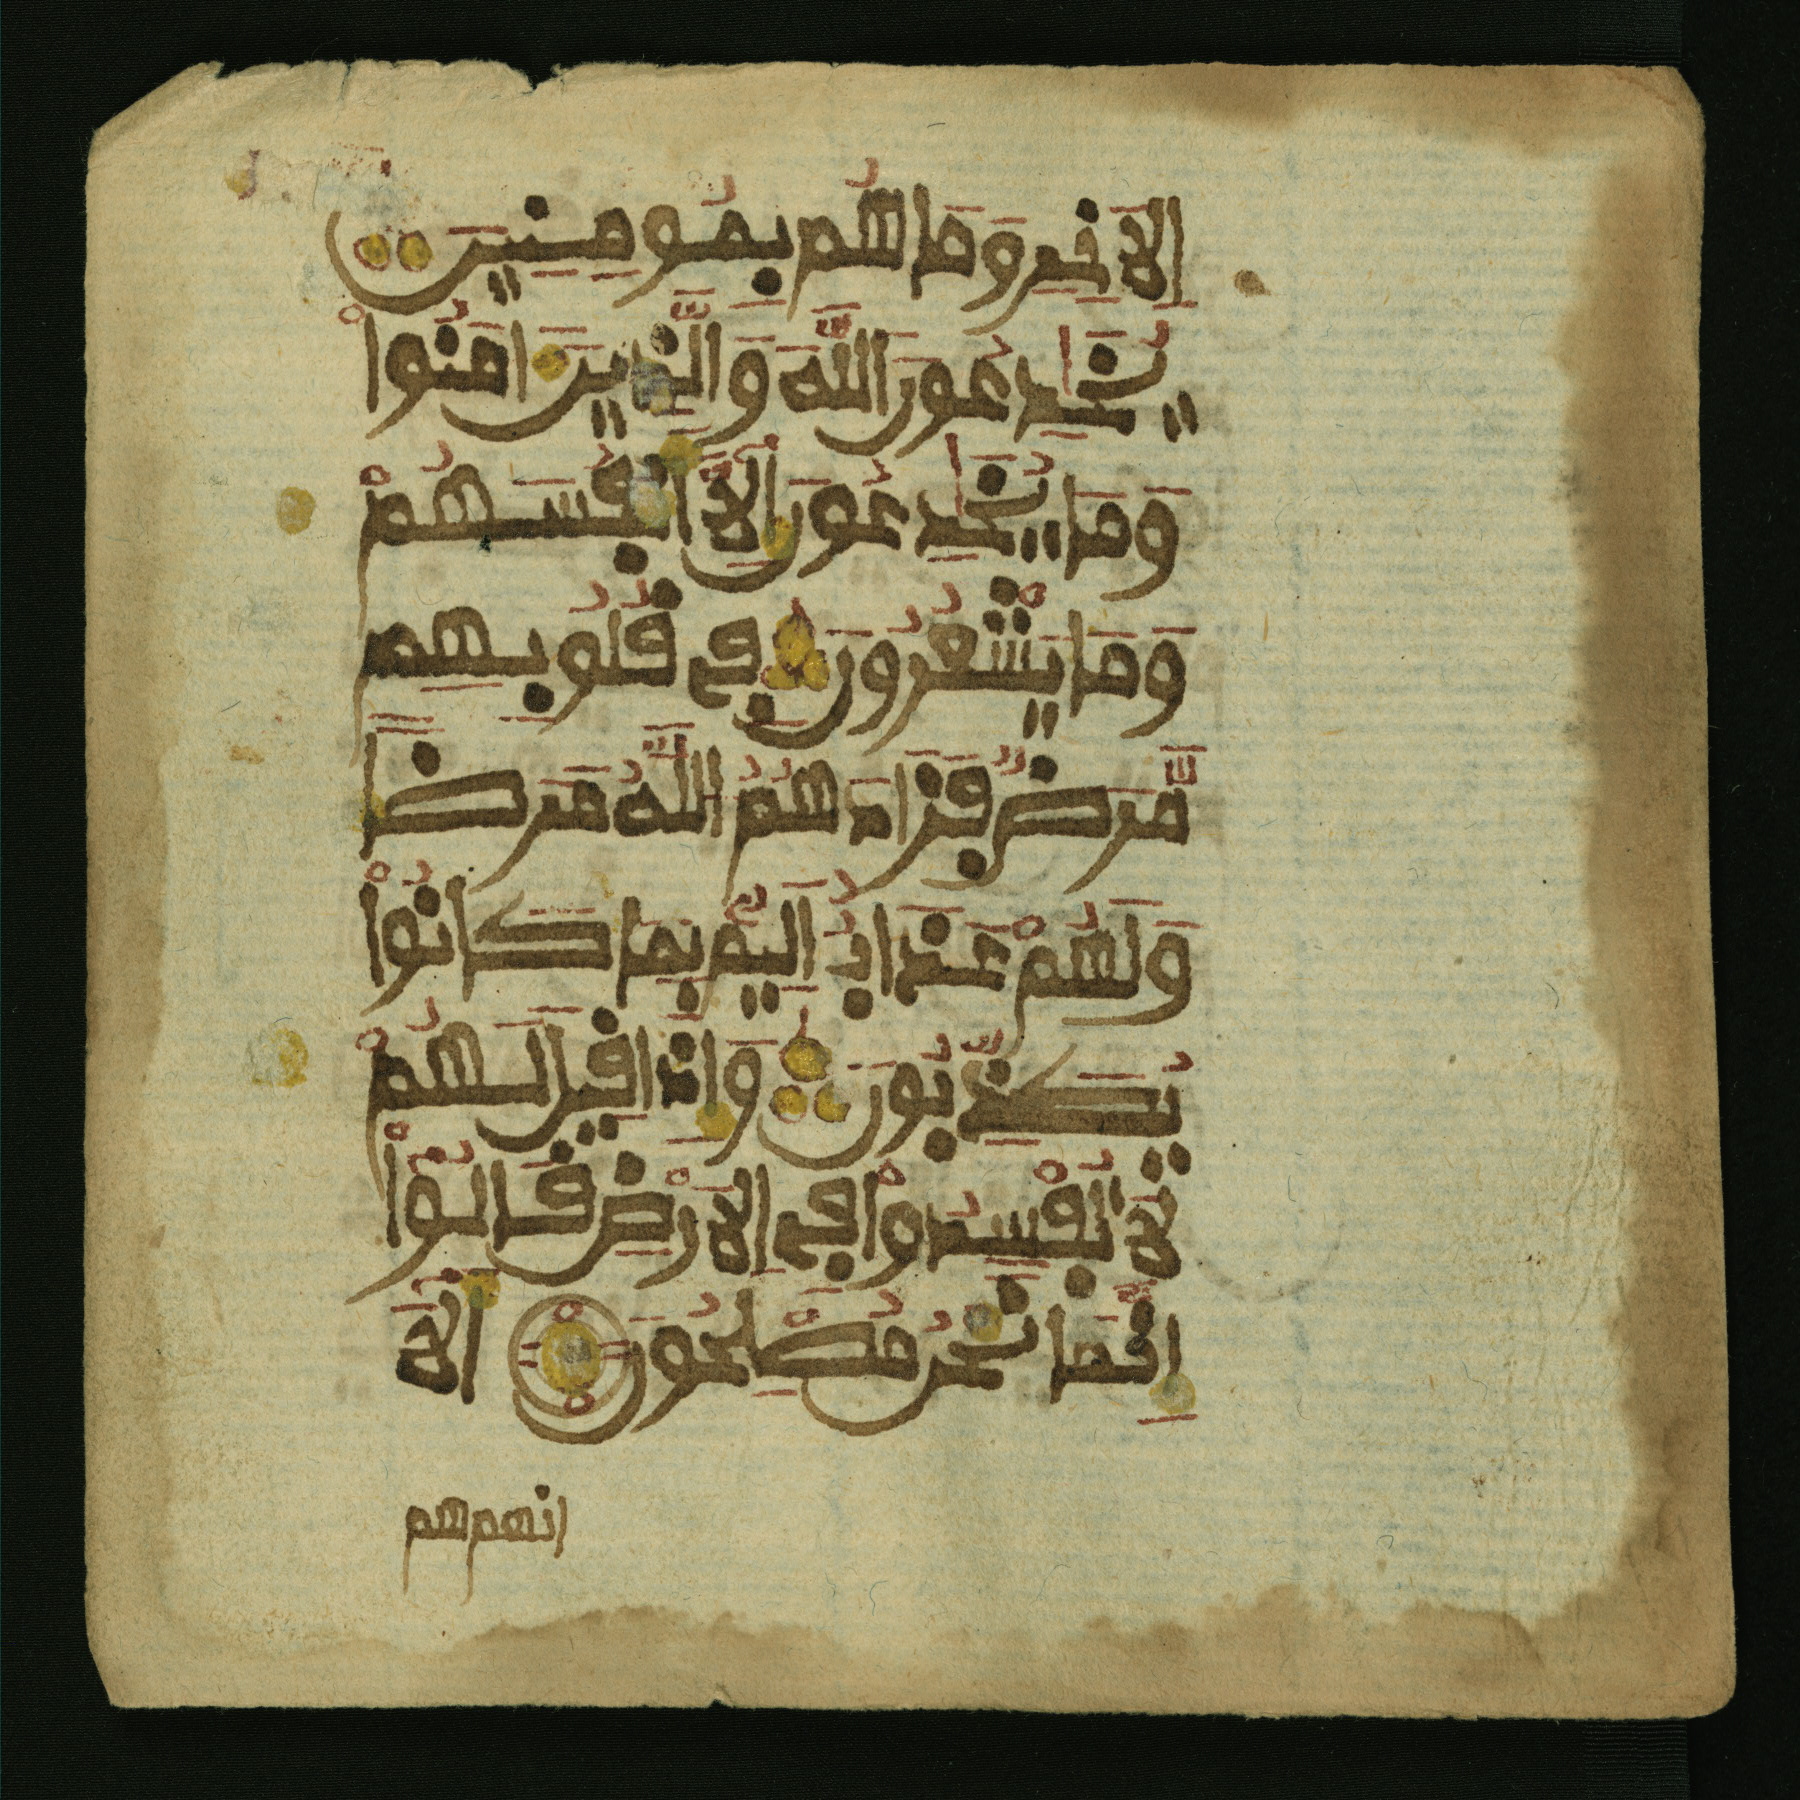 اَلَاخِرِ وَمَا هُم بِمُومِنِينَ
يُخَٰدِعُونَ اَللَّهَ وَالَّذِينَ ءَامَنُواْ
وَمَا يُخَٰدِعُونَ إِلَّا أَنفُسَهُمْ
وَمَا يَشْعُرُونَ فِي قُلُوبِهِم
مَّرَضٌ فَزَادَهُمُ اللَّهُ مَرَضاً
وَلَهُمْ عَذَابٌ اَلِيمٌ بِمَا كَانُواْ
يُكَذِّبُونَ وَإِذَا قِيلَ لَهُمْ
لَا تُفْسِدُواْ فِي الَارْضِ قَالُواْ
إِنَّمَا نَحْنُ مُصْلِحُونَ أَلَا
انهم هم